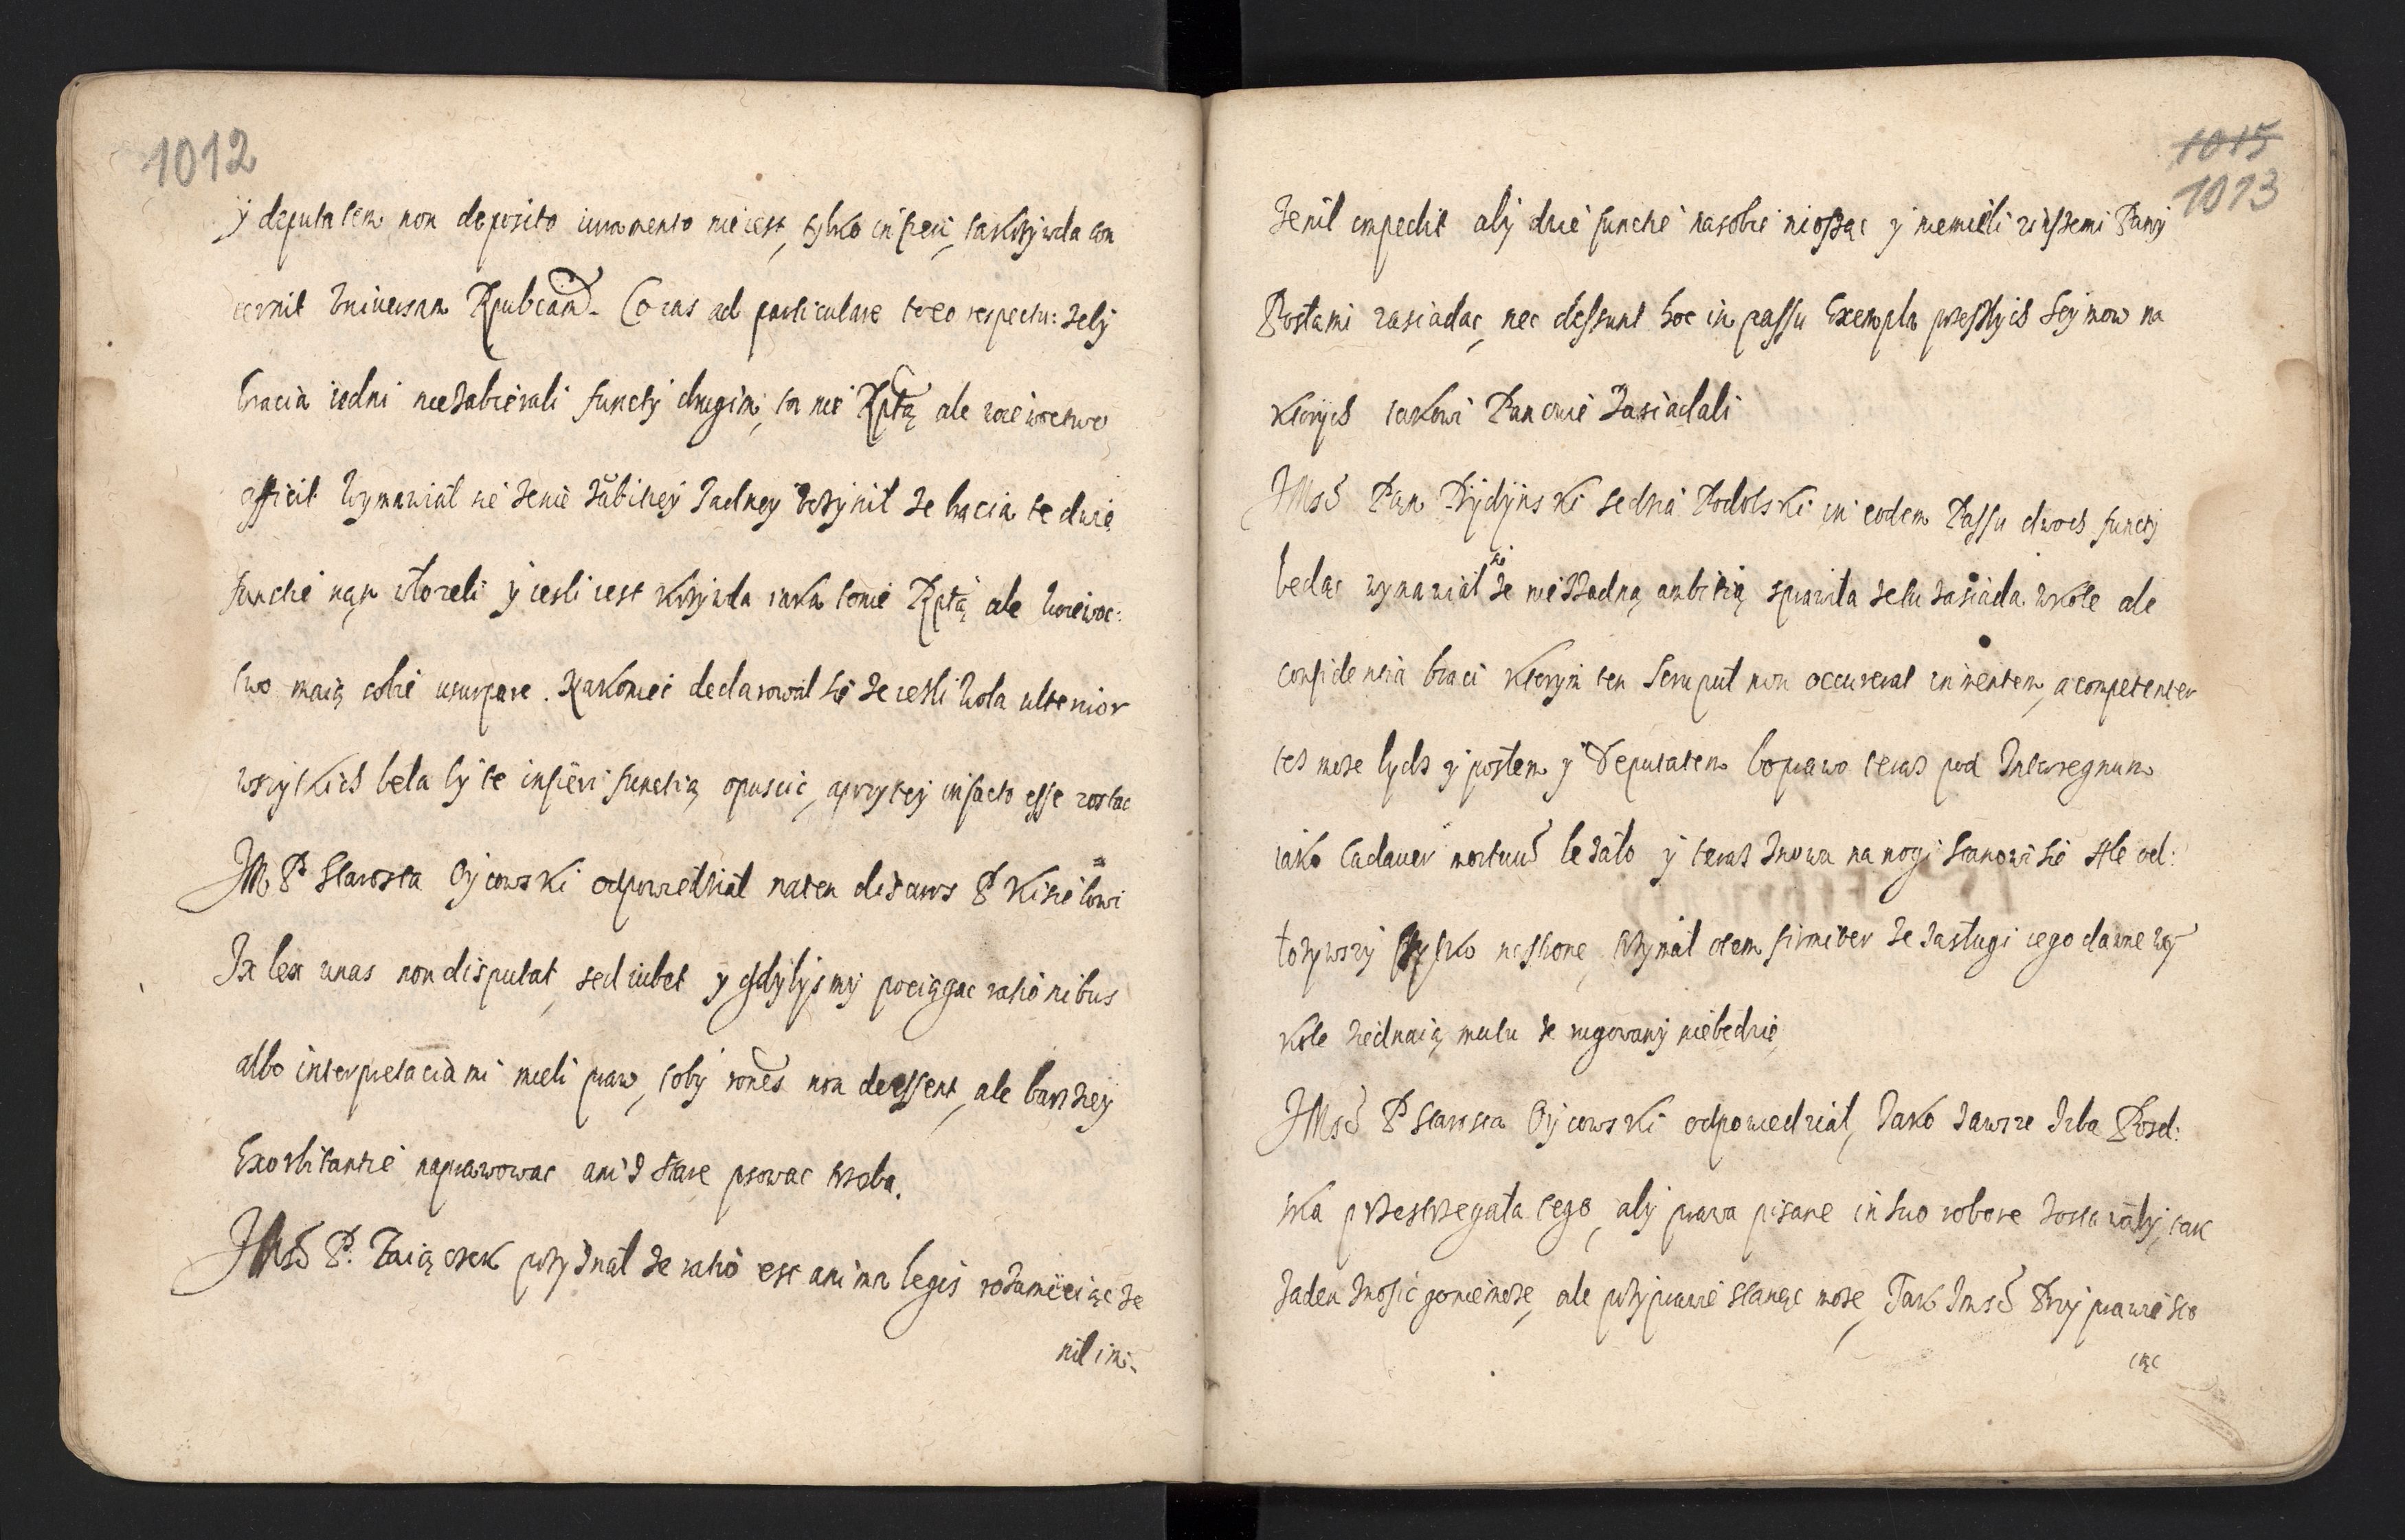 1012
y deputatem non deposito iuramento nie iest, tylko in fieri, ta krzywda con
cernit Universam Rpubcam. Co zas ad particulare tego respectu: zeby
bracia iedni niezabierali functy drugim, to nie Rptą ale woiewoctwo
afficit wymawiał sie zenie zabitney zadney uczynił ze bracia te dwie
functie nan włozeli y iesli iest krzywda iaka tonie Rptą ale woiewoc:
two maią sobie usurpare. Nakoniec declarował sie ze iesli wola ulterior
wszytkich bela by te in fieri functią opuscic, a przytey in facto esse zostac
JM P Starosta Oycowski odpowiedział naten discurs P Kisielowi
Ix lex unas non disputat, sed iubet y gdybysmy pociągac rationibus
albo interpretaciami mieli praw, toby rones non deessent, ale barziey
Exorbitantie naprawowac aniz stare psowac trzeba.
JMsć P. Zaiączek przyznał ze ratio est anima legis rozumieiąc ze
nil im-
1015
1013
ze nil impedit aby dwie functie nasobie niosząc y niemieli zinszemi Pany
Posłami zasiadac, nec dessunt hoc in passu Exempla przeszłych Seymow na
ktorych takowi Panowie zasiadali
JMsć Pan Dydynski Sedzia Podolski in eodem Passu dwoch functy
bedąc wymawiał sie ze nie zzadną ambitią sprawiła zetu zasiada wkole ale
confidentia braci ktorym ten scrupuł non occurerat in mentem, a competenter
tes moze bydz y posłem y Deputatem bo prawo teraz pod Interregnum
iako Cadauer mortuu lezało y teraz znowu na nogi stanowi sie Ale od:
łozywszy wszytko nastronę, trzymał otem firmiter ze zasługi iego dawne wy
kole ziednaią mutu ze rugowany niebedzie
JMsć P Starosta Oycowski odpowiedział, Jako zawsze Izba Posel:
ska przestrzegała tego, aby prawa pisane in suo robore zostawały, tak
zaden znosic goniemoze, ale przyprawie stanąc moze, Tak Jmsć Przy prawie sto
iąc